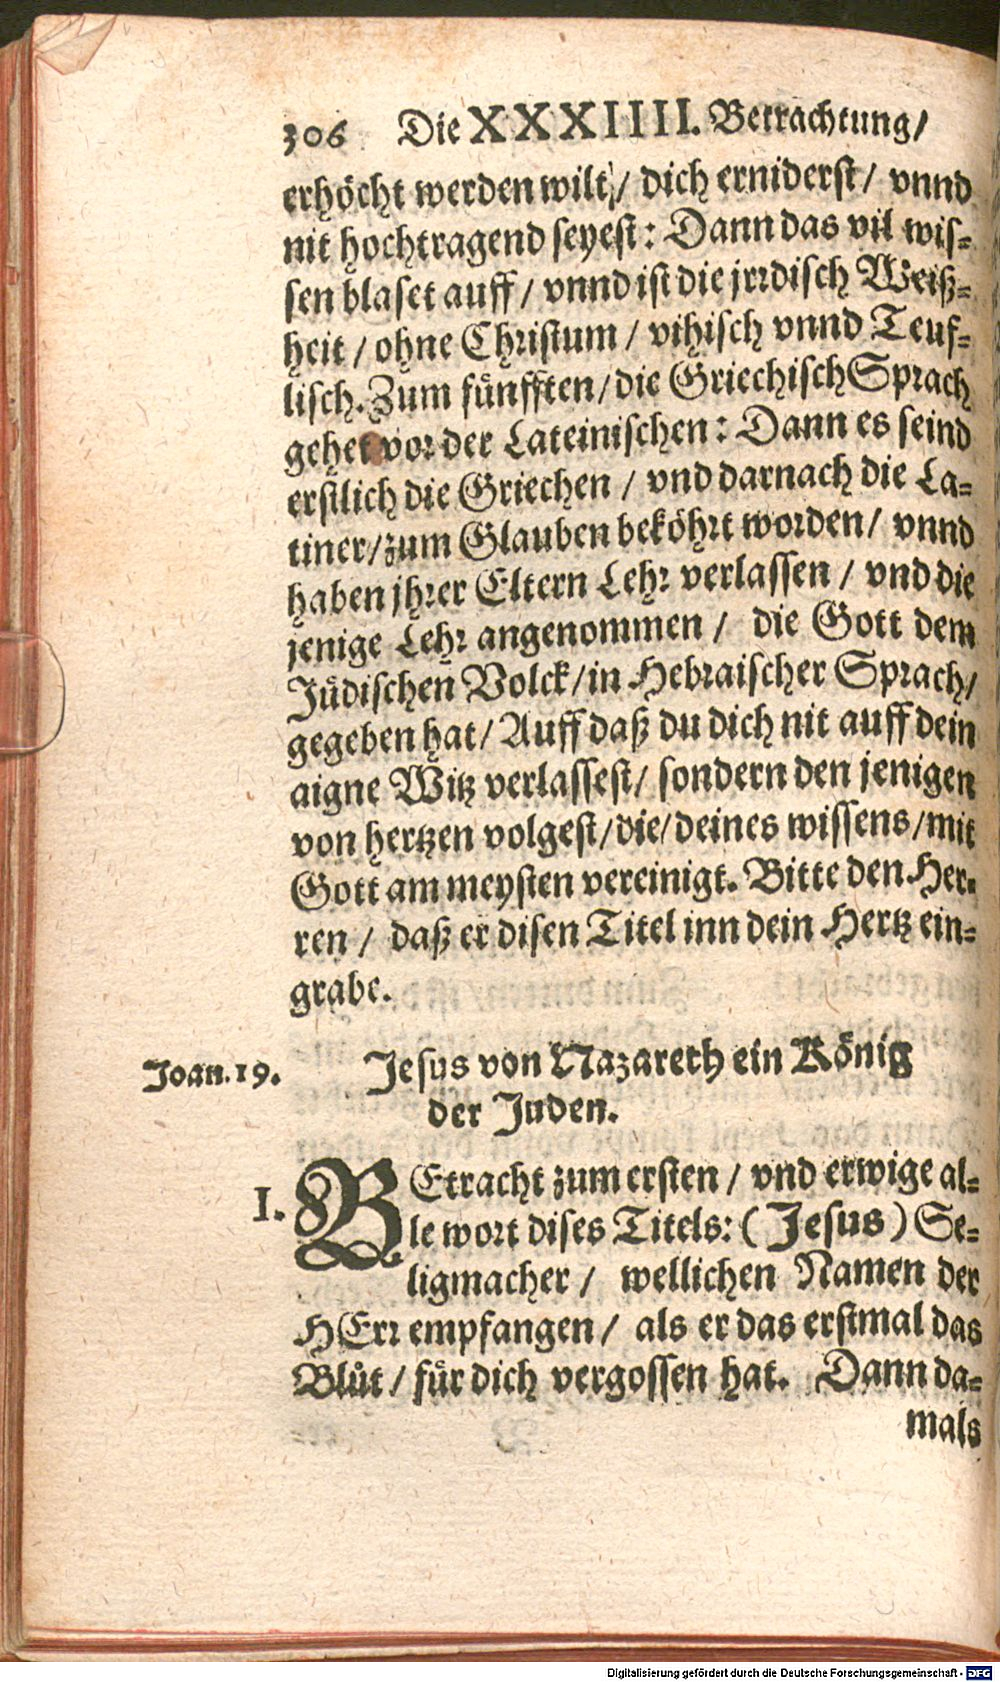 306 Die XXXIIII. Betrachtung/
erhöcht werden wilt/ dich erniderst/ vnnd
nit hochtragend seyest: Dann das vil wis-
sen blaset auff/ vnnd ist die jrrdisch Weiß-
heit/ ohne Christum/ vihisch vnnd Teuf-
lisch. Zum fuͤnfften/ die Griechisch Sprach
gehet vor der Lateinischen: Dann es seind
erstlich die Griechen/ vnd darnach die La-
tiner/ zum Glauben beköhrt worden/ vnnd
haben jhrer Eltern Lehr verlassen/ vnd die
jenige Lehr angenommen/ die Gott dem
Juͤdischen Volck/ in Hebraischer Sprach/
gegeben hat/ Auff daß du dich nit auff dein
aigne Witz verlassest/ sondern den jenigen
von hertzen volgest/ die/ deines wissens/ mit
Gott am meysten vereinigt. Bitte den Her-
ren/ daß er disen Titel inn dein Hertz ein-
grabe.
Joan. 19. Jesus von Nazareth ein König
der Juden.
I. BEtracht zum ersten/ vnd erwige al-
le wort dises Titels: (Jesus) Se-
ligmacher/ wellichen Namen der
HErr empfangen/ als er das erstmal das
Bluͤt/ fuͤr dich vergossen hat. Dann da-
mals
Digitalisierung gefördert durch die Deutsche Forschungsgemeinschaft - DFG